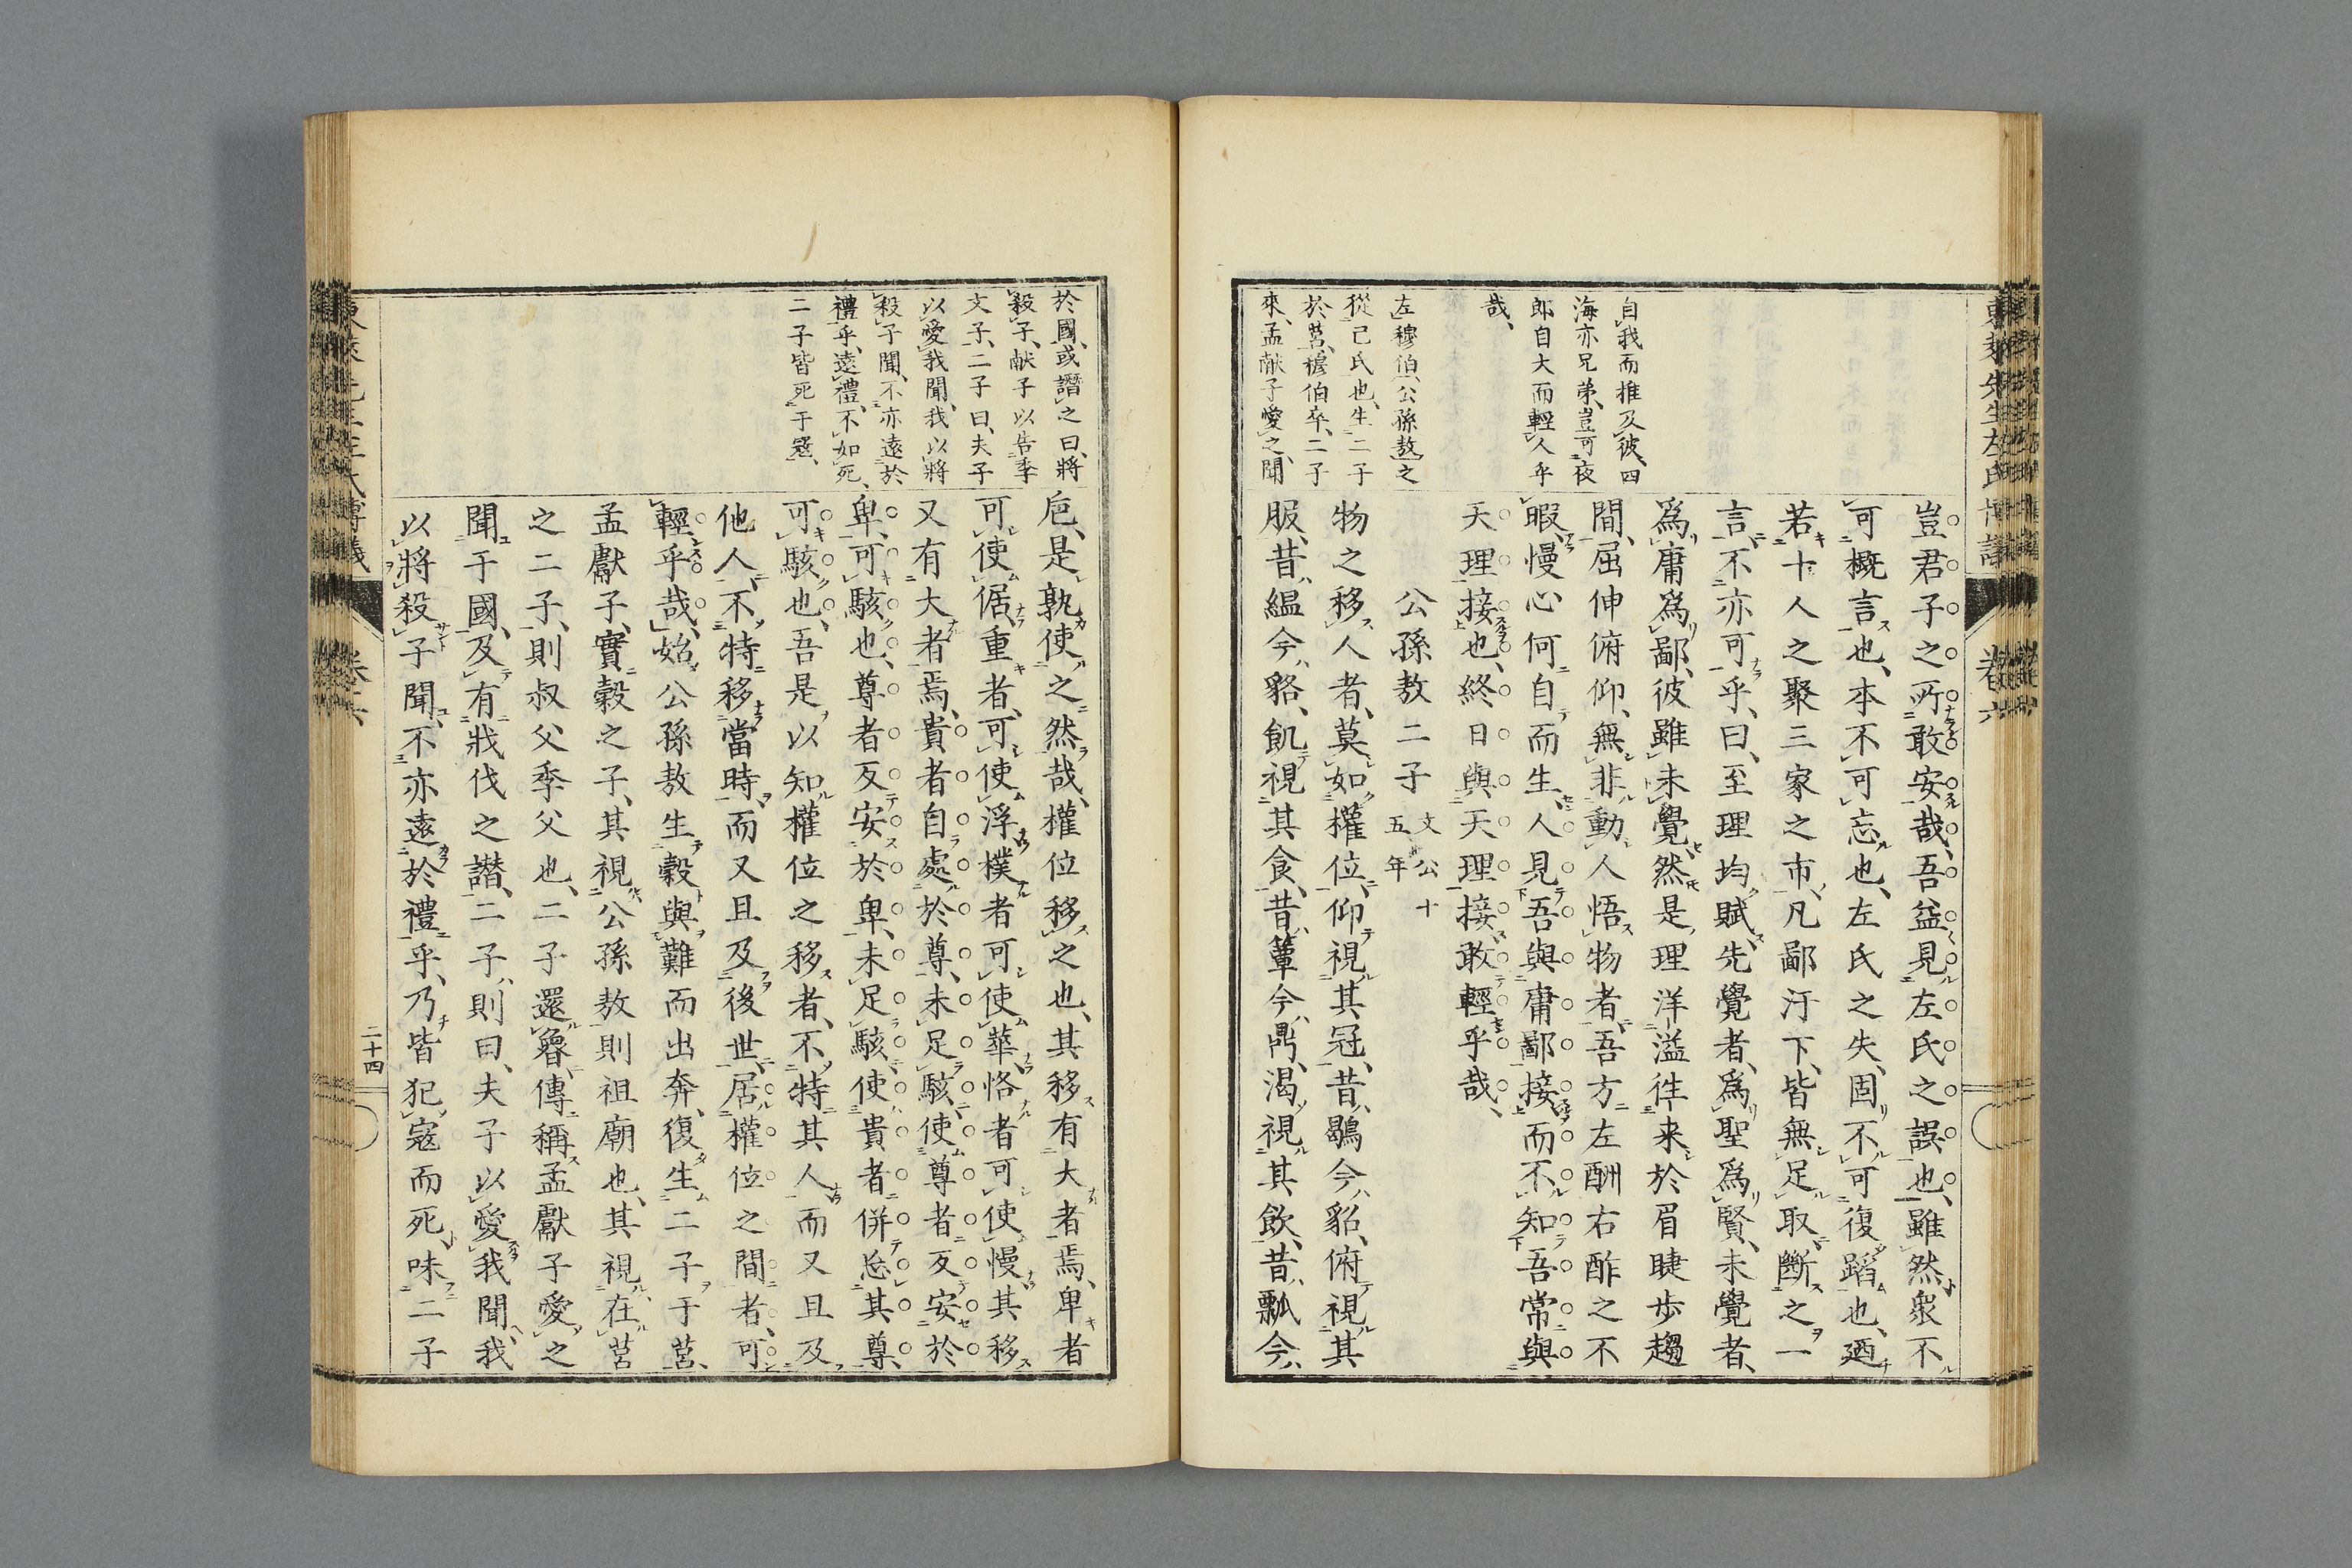 自我而推及彼、四
海亦兄弟、豈可夜
郎自大而輕人乎
哉、
左穆伯、公孫敖之
從己氏也、生二子
於莒、穆伯卒、二子
來、孟献子愛之、聞
豈君子之所敢安哉、吾益見左氏之誤也、雖然、衆不
可概言也、本不可忘也、左氏之失、固不可復蹈也、廼
若十人之聚三家之市、凡鄙汙下、皆無足取、斷之一
言、不亦可乎、曰、至理均賦、先覺者、爲聖爲賢、未覺者、
爲庸爲鄙、彼雖未覺、然是理洋溢徃来於眉睫歩趨
間、屈伸俯仰、無非動人悟物者、吾方左酬右酢之不
暇、慢心何自而生、人見吾與庸鄙接而不知吾常與
天理接也、終日與天理接、敢輕乎哉、
公孫敖二子文公十五年
物之移人者、莫如權位、仰視其冠、昔鶡今貂、俯視其
服、昔緼今貉、飢視其食、昔簞今鼎、渴視其飲、昔瓢今
東萊先生左氏博議
卷六
於國、或譖之曰、將
殺子、献子以告季
文子、二子曰、夫子
以愛我聞、我以將
殺子聞、不亦遠於
禮乎、遠禮、不如死、
二子皆死于寇、
巵、是孰使之然哉、權位移之也、其移有大者焉、卑者
可使倨、重者、可使浮、樸者可使華、恪者可使慢、其移
又有大者焉、貴者自處於尊、未足駭、使尊者反安於
卑、可駭也、尊者反安於卑、未足駭、使貴者併忘其尊、
可駭也、吾是以知權位之移者、不特其人、而又且及
他人、不特移當時、而又且及後世、居權位之間者、可
輕乎哉、始公孫敖生穀與難而出奔、復生二子于莒、
孟獻子、實穀之子、其視公孫敖則祖廟也、其視在莒
之二子、則叔父季父也、二子還魯、傳稱孟獻子愛之
聞于國、及有戕伐之譖、二子、則曰、夫子以愛我聞、我
以將殺子聞、不亦遠於禮乎、乃皆犯寇而死、味二子
東萊先生左氏博議
卷六
二十四